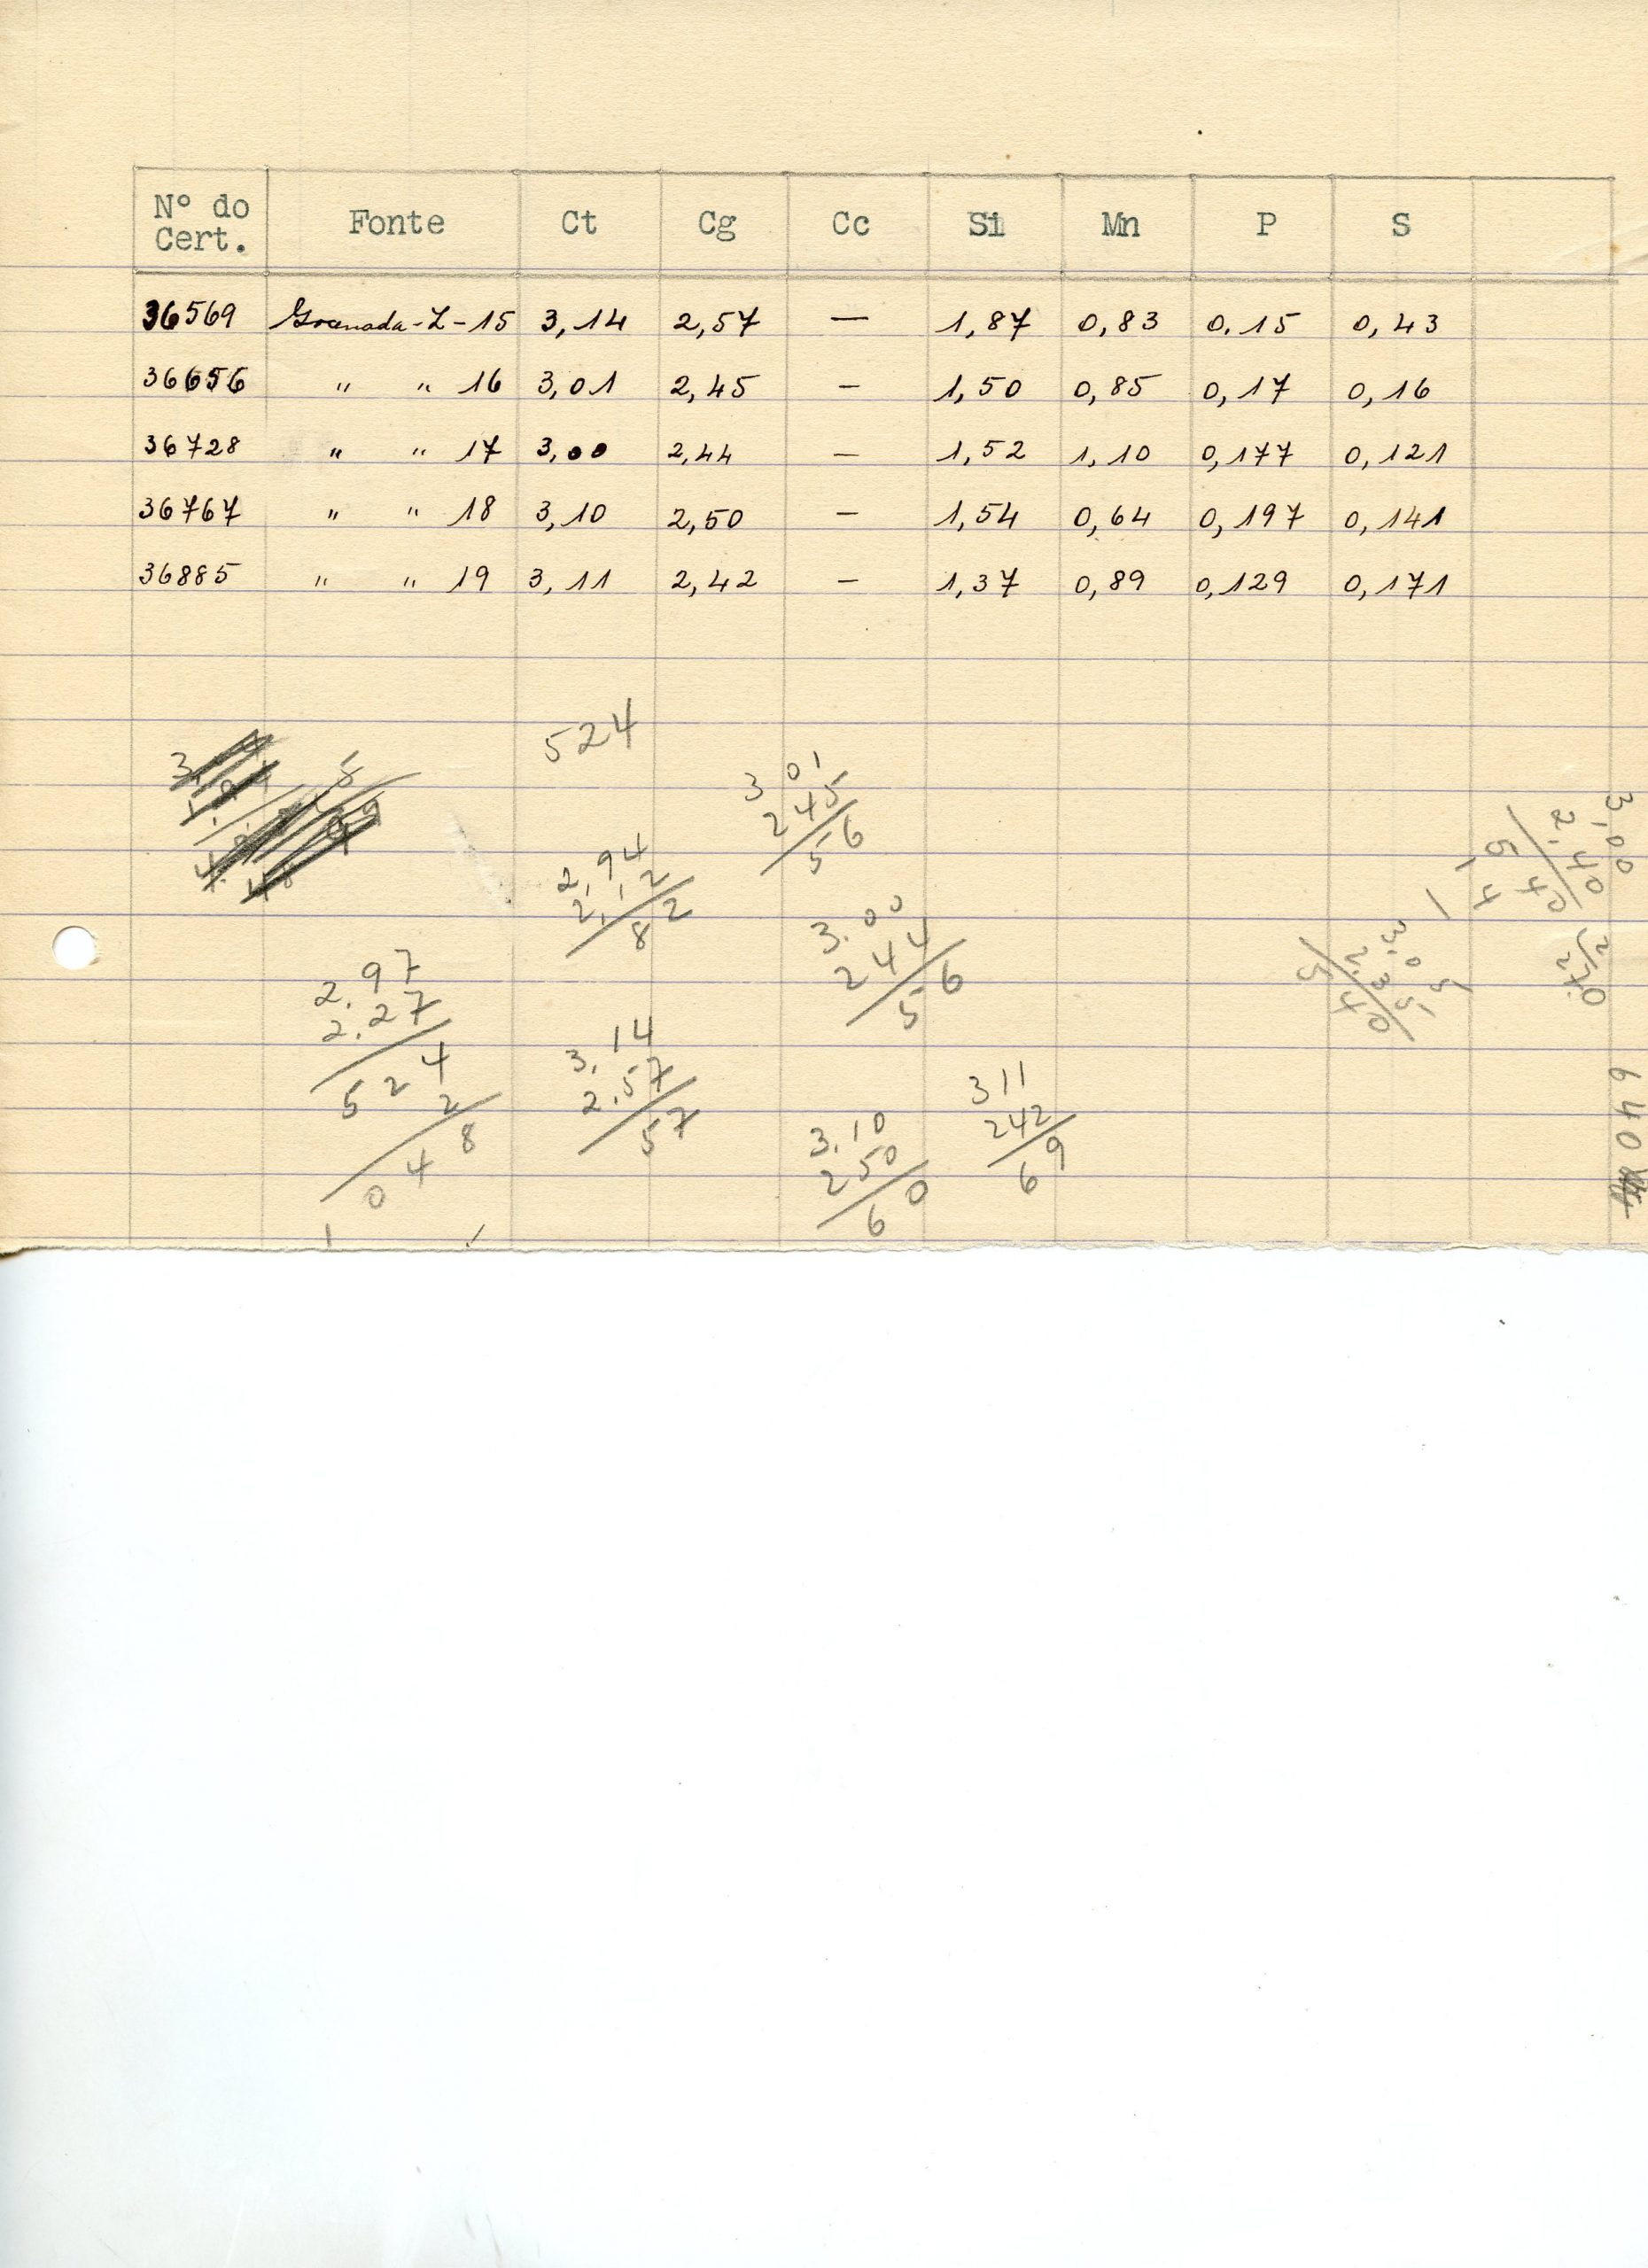 Nº do Cert. Fonte Ct Cg Cc Si Mn P S
36569 Granada-Z-15 3,14 2,57 — 1,87 0,83 0.15 0,43
36656 " " 16 3,01 2,45 — 1,50 0,85 0,17 0,16
36728 " " 17 3,00 2,44 — 1,52 1,10 0,177 0,121
36767 " " 18 3,10 2,50 — 1,54 0,64 0,197 0,141
36885 " " 19 3,11 2,42 — 1,37 0,89 0,129 0,171
524
3 01
245
56
2,94
2,12
82
3.00
244
56
2.97
2.27
524
2
048
3.14
2.57
57
3.10
250
60
311
242
69
3,00
2.40
540
3.05
2.35
540
640